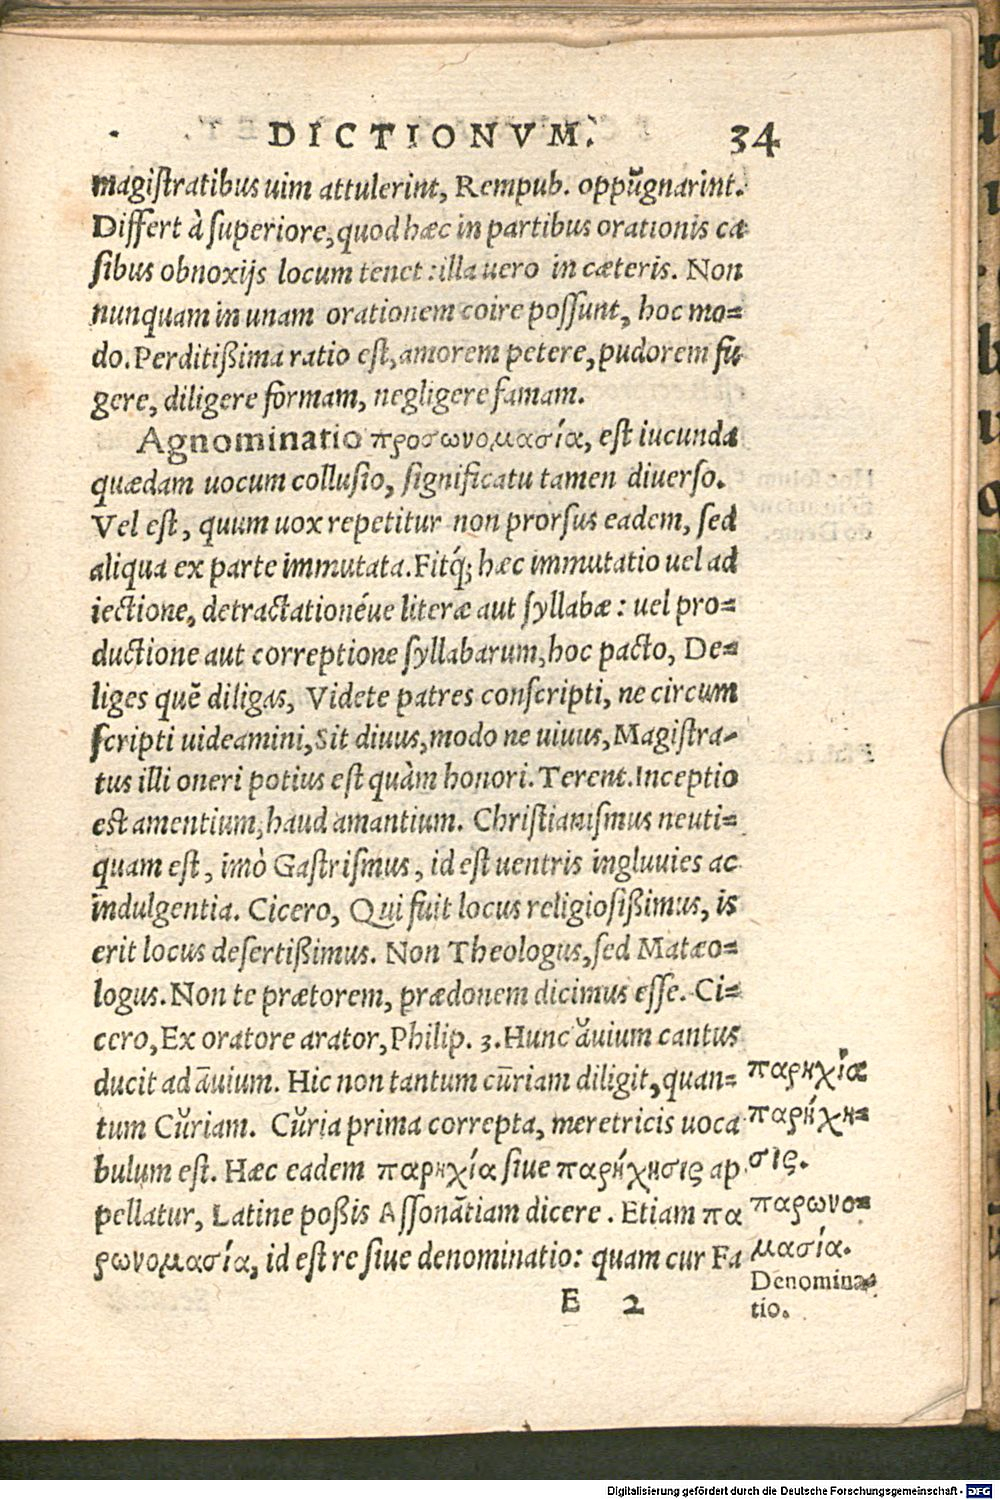 DICTIONVM. 34
magistratibus uim attulerint, Rempub. oppŭgnarint.
Differt à superiore, quod hæc in partibus orationis ca
sibus obnoxijs locum tenet: illa uero in cæteris. Non
nunquam in unam orationem coire possunt, hoc mo=
do. Perditißima ratio est, amorem petere, pudorem fu
gere, diligere formam, negligere famam.
Agnominatio προσωνομασία, est iucunda
quædam uocum collusio, significatu tamen diuerso.
Vel est, quum uox repetitur non prorsus eadem, sed
aliqua ex parte immutata. Fitq́; hæc immutatio uel ad
iectione, detractationéue literæ aut syllabæ: uel pro=
ductione aut correptione syllabarum, hoc pacto, De=
liges quẽ diligas, Videte patres conscripti, ne circum
scripti uideamini, Sit diuus, modo ne uiuus, Magistra-
tus illi oneri potius est quàm honori. Terent. Inceptio
est amentium, haud amantium. Christianismus neuti=
quam est, imò Gastrismus, id est uentris ingluuies ac
indulgentia. Cicero, Qui fuit locus religiosißimus, is
erit locus desertißimus. Non Theologus, sed Matæo=
logus. Non te prætorem, prædonem dicimus esse. Ci=
cero, Ex oratore arator, Philip. 3. Hunc ăuium cantus
ducit ad āuium. Hic non tantum cūriam diligit, quan=
tum Cŭriam. Cŭria prima correpta, meretricis uoca
bulum est. Hæc eadem παρηχία siue παρήχησις ap
pellatur, Latine poßis Assonãtiam dicere. Etiam πα
ρωνομασία, id est re siue denominatio: quam cur Fa
παρηχία
παρήχη=
σις.
παρωνο=
μασία.
Denomina=
tio.
E 2
Digitalisierung gefördert durch die Deutsche Forschungsgemeinschaft - DFG